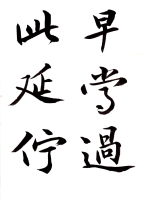 早嘗過
此延佇